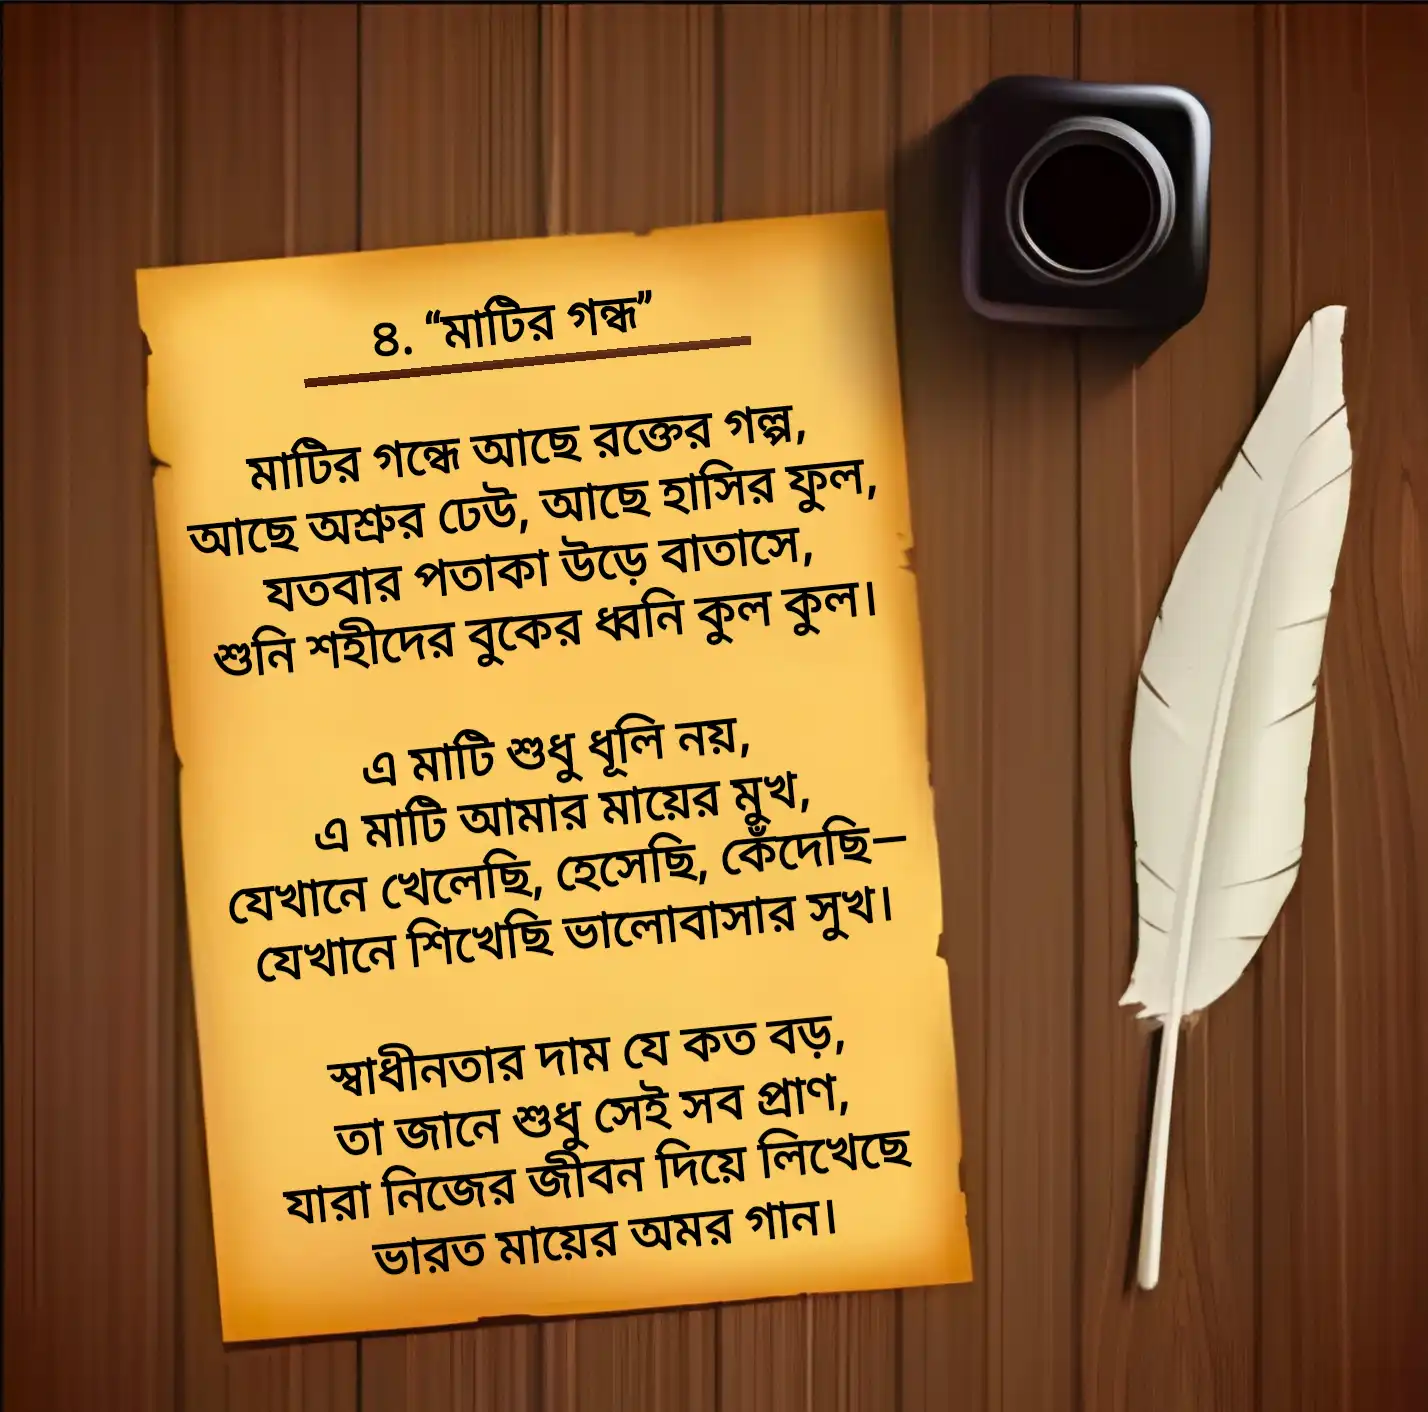 ৪. “মাটির গন্ধ”
মাটির গন্ধে আছে রক্তের গল্প,
আছে অশ্রুর ঢেউ, আছে হাসির ফুল,
যতবার পতাকা উড়ে বাতাসে,
শুনি শহীদের বুকের ধ্বনি কুল কুল।
এ মাটি শুধু ধূলি নয়,
এ মাটি আমার মায়ের মুখ,
যেখানে খেলেছি, হেসেছি, কেঁদেছি—
যেখানে শিখেছি ভালোবাসার সুখ।
স্বাধীনতার দাম যে কত বড়,
তা জানে শুধু সেই সব প্রাণ,
যারা নিজের জীবন দিয়ে লিখেছে
ভারত মায়ের অমর গান।